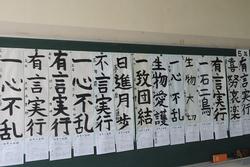 有言実行
喜怒哀楽
有言実行
一石二鳥
生物大切
一心不乱
生物愛護
一致団結
日進月歩
不言実行
一心不乱
有言実行
有言実行
一心不乱